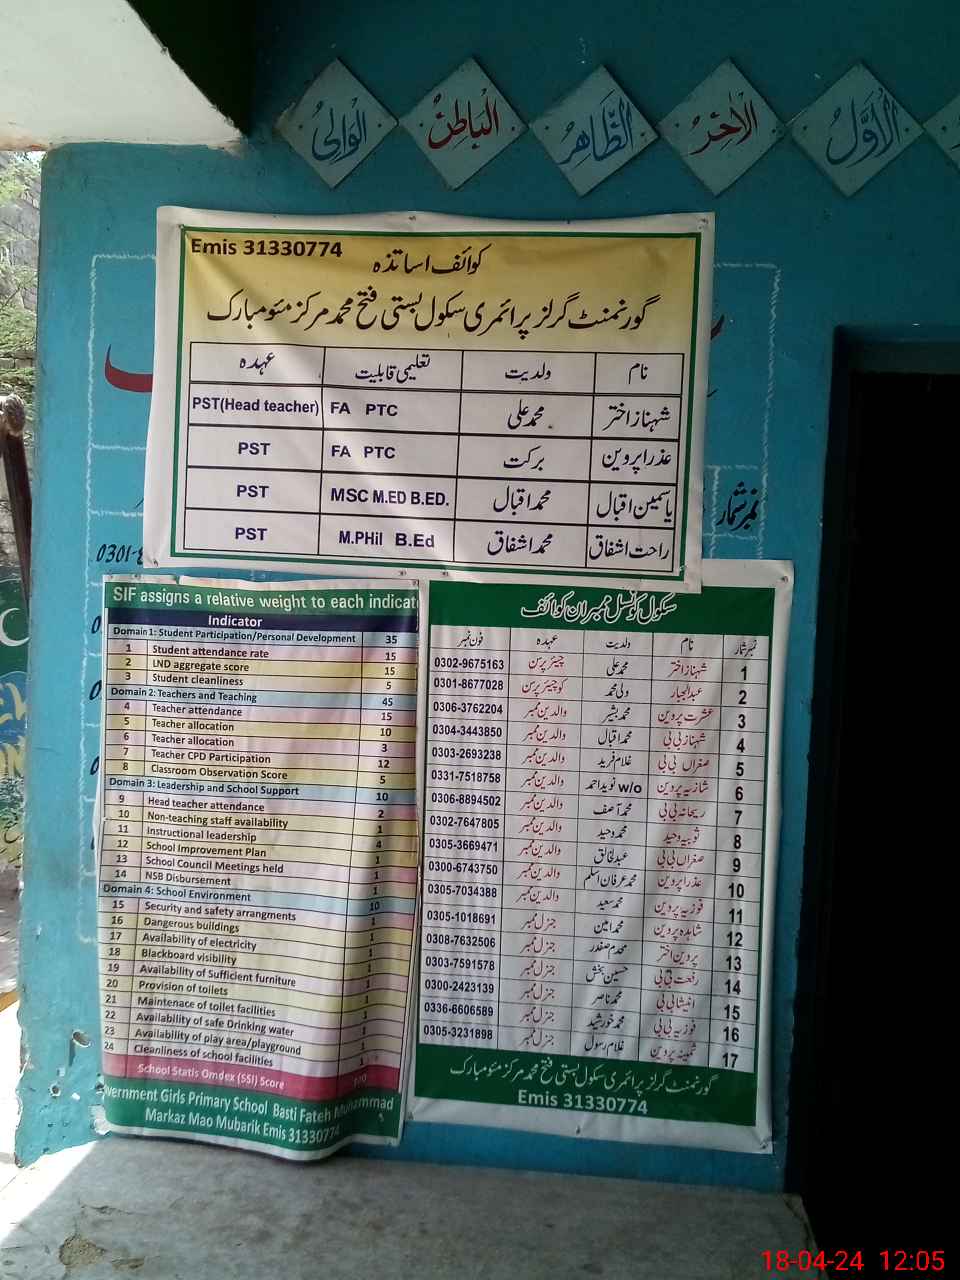 الوالي الباطن الظاهر الآخر الأول
Emis 31330774
کوائف اساتذہ
گورنمنٹ گرلز پرائمری سکول بستی فتح محمد مرکز مئو مبارک
نام ولدیت تعلیمی قابلیت عہدہ
شہناز اختر محمد علی FA PTC PST(Head teacher)
عذرا پروین برکت FA PTC PST
یاسمین اقبال محمد اقبال MSC M.ED B.ED. PST
راحت اشفاق محمد اشفاق M.PHil B.Ed PST
نمبر شمار
0301-
SIF assigns a relative weight to each indicat
Indicator
Domain1: Student Participation/Personal Development 35
1 Student attendance rate 15
2 LND aggregate score 15
3 Student cleanliness 5
Domain 2: Teachers and Teaching 45
4 Teacher attendance 15
5 Teacher allocation 10
6 Teacher allocation 3
7 Teacher CPD Participation 12
8 Classroom Observation Score 5
Domain 3: Leadership and School Support 10
9 Head teacher attendance 2
10 Non-teaching staff availability 1
11 Instructional leadership 4
12 School Improvement Plan 1
13 School Council Meetings held 1
14 NSB Disbursement 1
Domain 4: School Environment 10
15 Security and safety arrangments 1
16 Dangerous buildings 1
17 Availability of electricity 1
18 Blackboard visibility 1
19 Availability of Sufficient furniture 1
20 Provision of toilets 1
21 Maintenace of toilet facilities 1
22 Availability of safe Drinking water 1
23 Availability of play area/playground 1
24 Cleanliness of school facilities 1
School Statis Omdex (SSI) Score 100
vernment Girls Primary School Basti Fateh Muhammad
Markaz Mao Mubarik Emis 31330774
سکول کونسل ممبران کوائف
نمبر شمار نام ولدیت عہدہ فون نمبر
1 شہناز اختر محمد علی چیئر پرسن 0302-9675163
2 عبدالجبار ولی محمد کو چیئر پرسن 0301-8677028
3 عشرت پروین محمد بشیر والدین ممبر 0306-3762204
4 شہناز بی بی محمد اقبال والدین ممبر 0304-3443850
5 صغراں بی بی غلام فرید والدین ممبر 0303-2693238
6 شازیہ پروین w/o نوید احمد والدین ممبر 0331-7518758
7 ریحانہ بی بی محمد آصف والدین ممبر 0306-8894502
8 ثوبیہ وحید محمد وحید والدین ممبر 0302-7647805
9 صغراں بی بی عبدالخالق والدین ممبر 0305-3669471
10 عذرا پروین محمد عرفان اسلم والدین ممبر 0300-6743750
11 فوزیہ پروین محمد سعید والدین ممبر 0305-7034388
12 شاہدہ پروین محمد امین جنرل ممبر 0305-1018691
13 پروین اختر محمد صفدر جنرل ممبر 0308-7632506
14 رفعت بی بی حسین بخش جنرل ممبر 0303-7591578
15 انیشا بی بی محمد ناصر جنرل ممبر 0300-2423139
16 فوزیہ بی بی محمد خورشید جنرل ممبر 0336-6606589
17 ثمینہ پروین غلام رسول جنرل ممبر 0305-3231898
گورنمنٹ گرلز پرائمری سکول بستی فتح محمد مرکز مئو مبارک
Emis 31330774
18-04-24 12:05